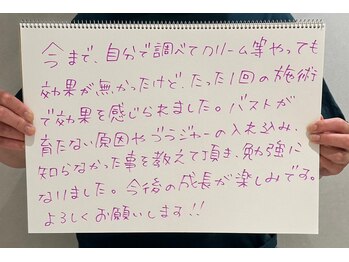 今まで、自分で調べてクリーム等やっても
効果が無かったけど、たった1回の施術
で効果を感じられました。バストが
育たない原因やブラジャーの入れ込み、
知らなかった事を教えて頂き、勉強に
なりました。今後の成長が楽しみです。
よろしくお願いします!!